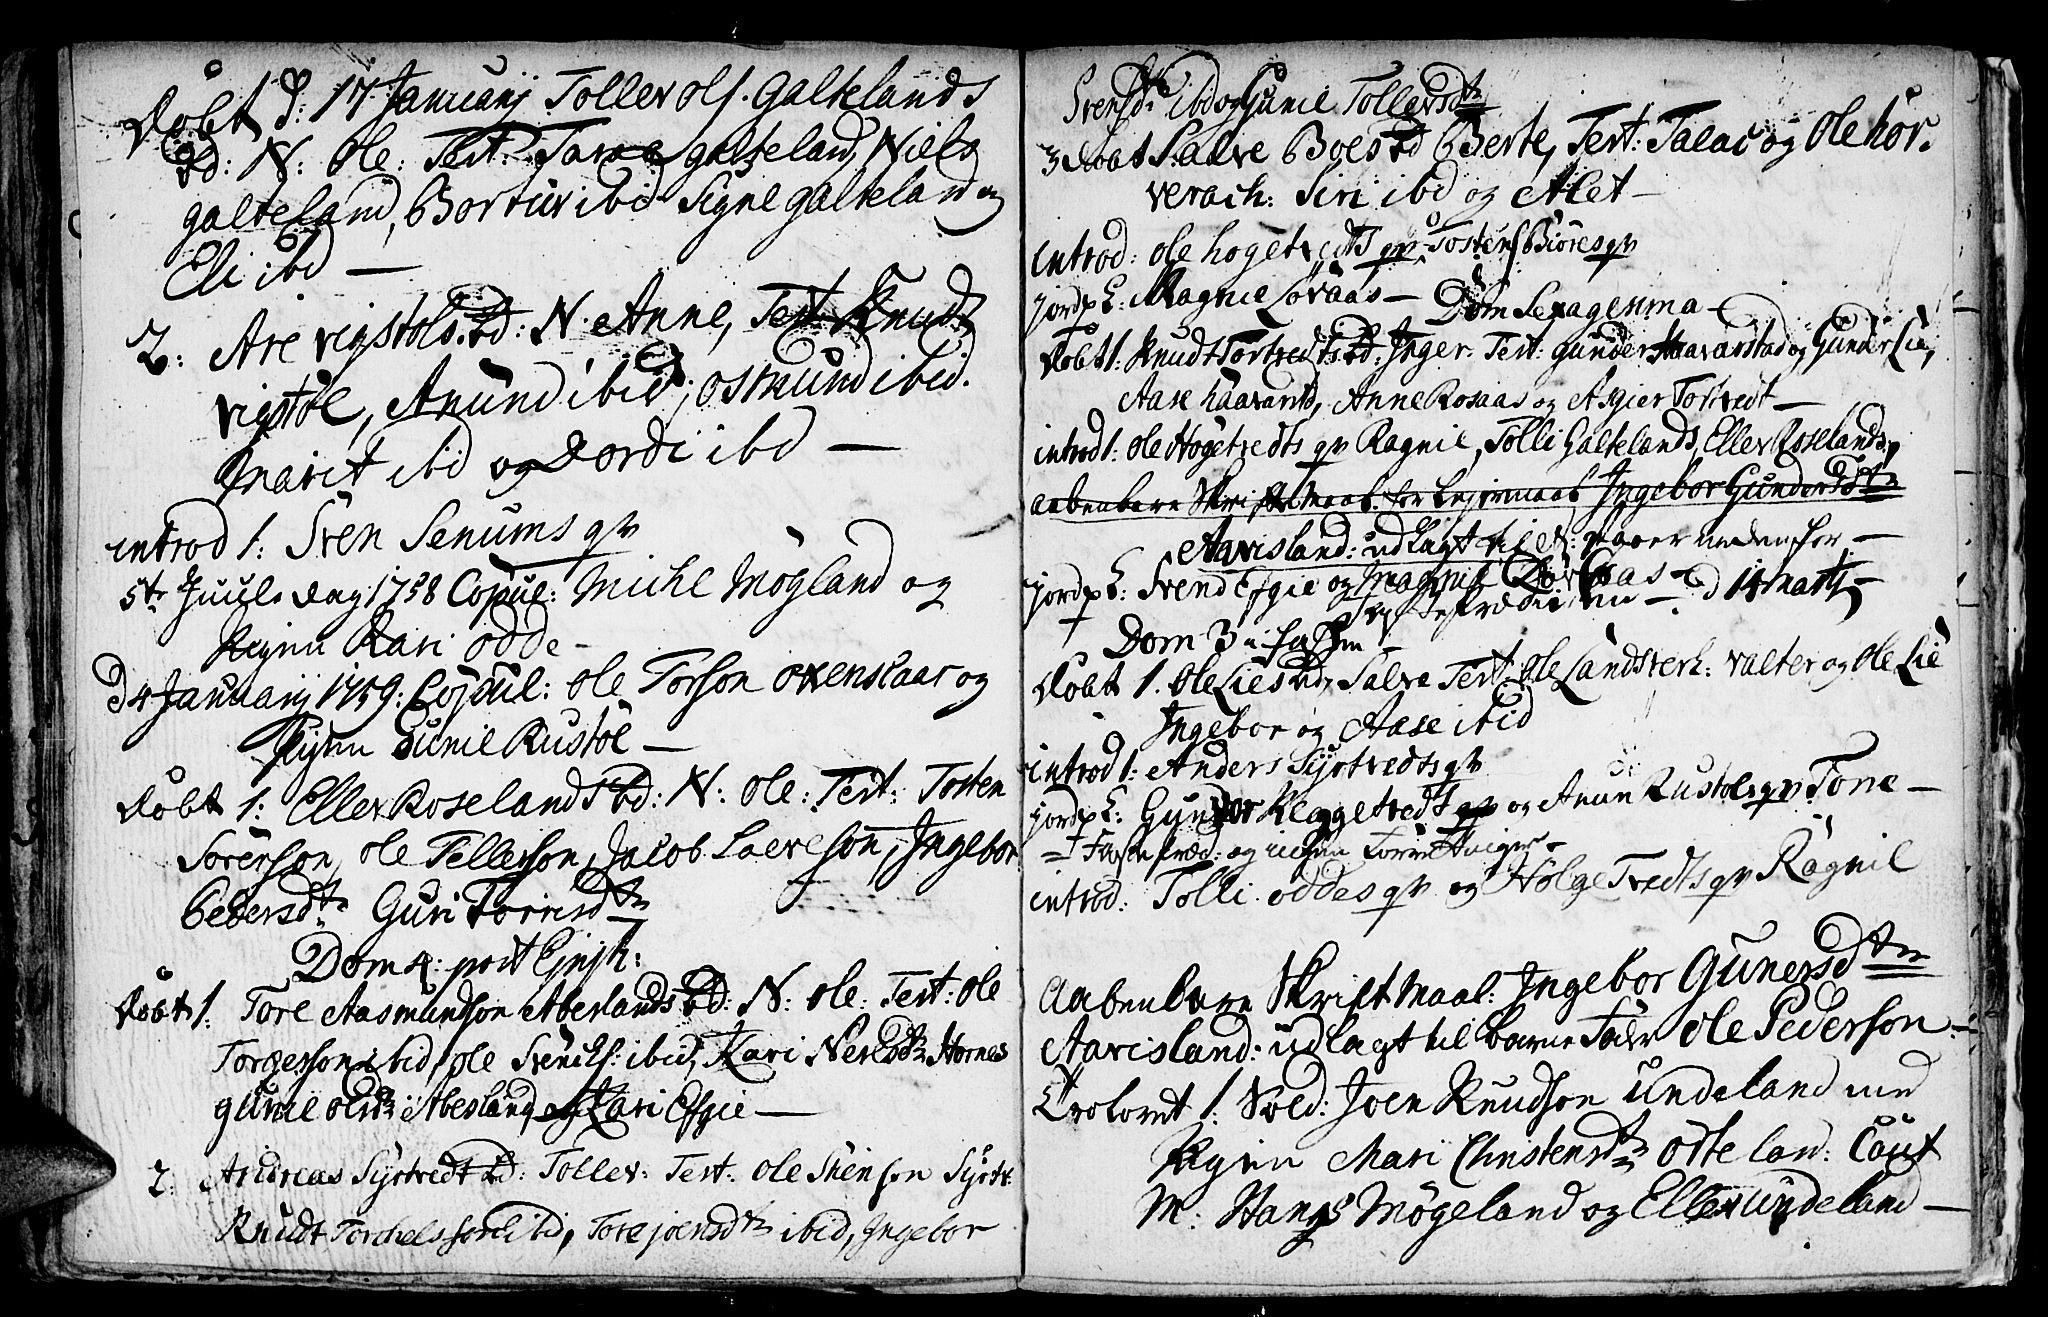 Döbt d: 17 Januarij Tollev Ols. Galtelands
bd: N: Ole: Test: Tarae galteland, Niels
galteland, Bortüv ibid Signe galteland og
Eli ibd —
2: Are vigstöls bd: N. Anne, Test: Knudt
vigstöl, Anund ibid, Osmund ibid.
Marit ibd og Dordi ibd —
introd 1: Sven Senums qv
5te Juule dag 1758 Copul: Michl Mögland og
Pigen Kari Odde —
d 4 Januarij 1759: Copul: Ole Torson Oxenskaar og
Pigen Gunil Rustöl —
Döbt 1: Ellev Roselands bd: N: Ole: Test: Tosten
Sörerson, Ole Tellefson, Jacob Laereson, Ingebor
Pedersdtr Guri Torrisdtr
Dom 4: post Epiph:
Döbt 1: Tore Aasmundson Abelands bd: N: Ole: Test: Ole
Torgerson ibid, Ole Svenels: ibid, Kari Nerisdtr Hornes
gunil olsdtr Abesland, og Kari Efgie —
2: Andreas Syrtvedt bd: Tollev: Test: Ole Stenson Syrtv:
Knudt Torchelsson ibid, Tore joensdtr ibid, Ingebor
Svensdtr ibd og Gunil Tollevsdtr
3 Döbt Salve Boes bd Berte, Test: Talac og Ole hör-
verach: Siri ibd og Alet —
introd: Ole hogetvedts qv, Tostens Biöres qv
jordp E: Magnil Lövaas — Dom Sexagesima —
Döbt 1: Knudt Tortvedts bd: Inger: Test: gunder Haavarstad og Gunder Lie,
Aase haavarstd, Anne Rosaas og Asgier Tortvedt —
introd 1: Ole Högetvedts qv Ragnil, Tolli Galtelands, Ellev Roselands,
aabenbare Skriftemaal for Lejermaal Ingebor Gundersdtr
Aavisland: udlagt til N: navn
jordp E: Svend Efgie og Magnil Lövaas — d 14 martj —
Dom 3 in fasten
Döbt 1. Ole Lies bd, Salve Test: Ole Landsverk: Valter og Ole Lie
Ingebor og Aase ibid
introd 1: Anders Syrtvedts qv
jordp E: Gunder Kleggetvedt qv og Anun Rustöls qv: Tone —
Faste præd: og ingen Forretninger —
introd: Tolli Oddes qv og Hölge Tvedts qv Ragnil
Aabenbare Skriftmaal: Ingebor Gunersdtr
Aavisland: udlagt til barne Fader Ole Pederson —
Trolovet 1: Sold: Joen Knudson Undeland med
Pigen Mari Christensdtr Odteland: Caut
M: Hangs Mögeland og Ellev Undeland —